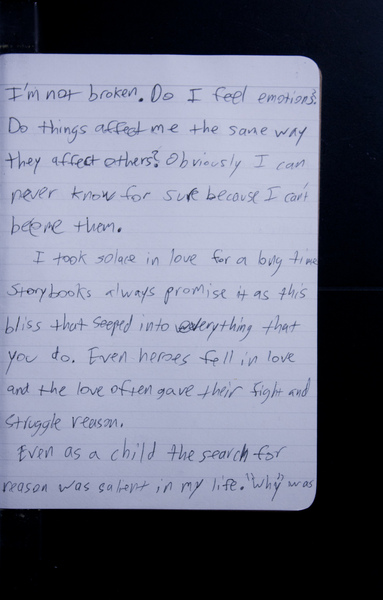 I'm not broken. Do I feel emotions?
Do things affect me the same way
they affect others? Obviously I can
never know for sure because I can't
be them.
I took solace in love for a long time
Storybooks always promise it as this
bliss that seeped into everything that
you do. Even heroes fell in love
and the love often gave their fight and
struggle reason.
Even as a child the search for
reason was salient in my life. "Why" was